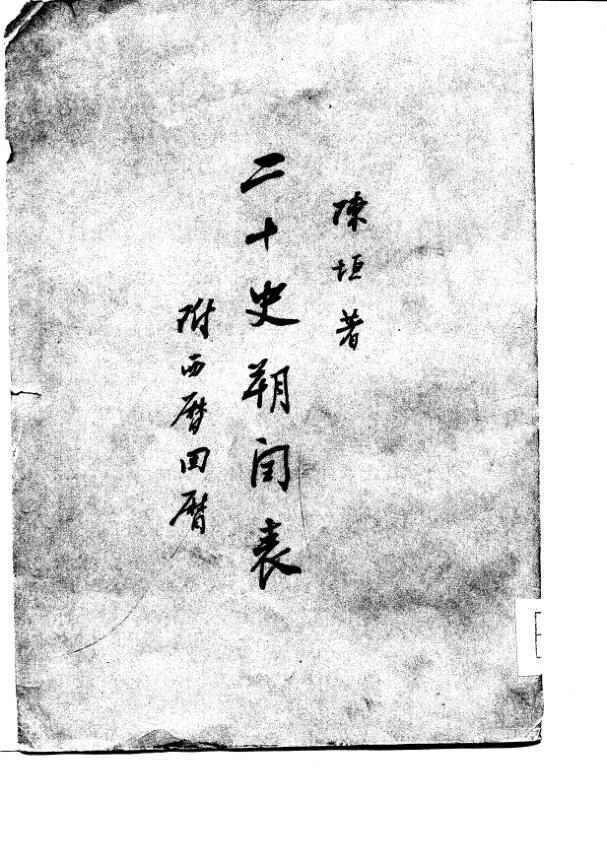 陳垣著
二十史朔閏表
附西曆回曆